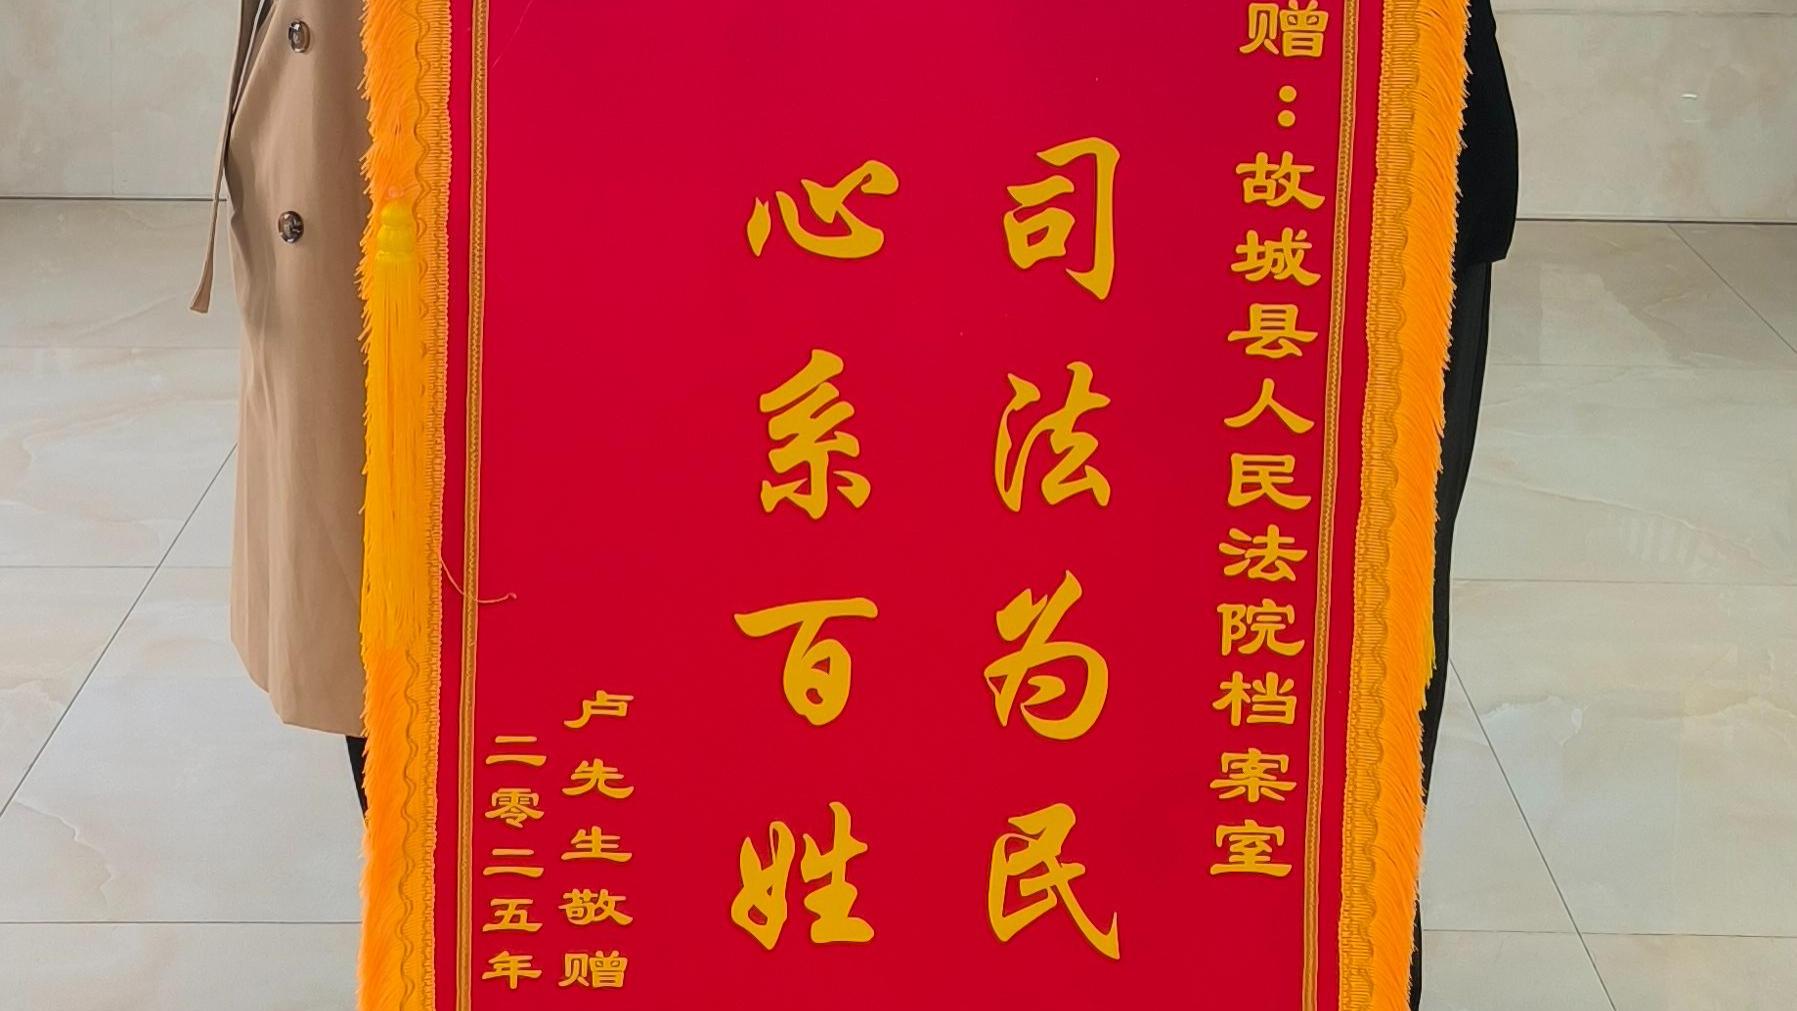 赠：故城县人民法院档案室
司法为民
心系百姓
卢先生敬赠
二零二五年